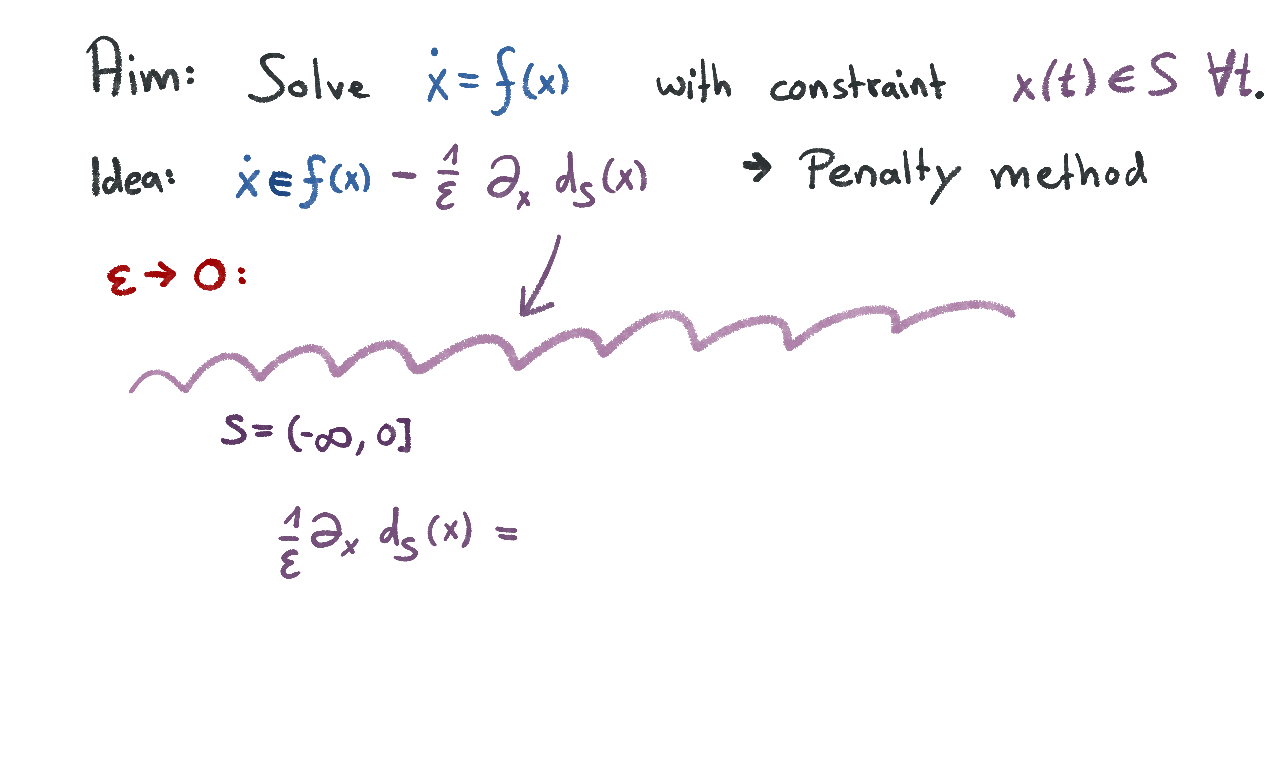 Aim: Solve ẋ = f(x) with constraint x(t) ∈ S ∀t.
Idea: ẋ ∈ f(x) - 1/ε ∂ₓ d_S(x) → Penalty method
ε → 0:
S = (-∞, 0]
1/ε ∂ₓ d_S(x) =